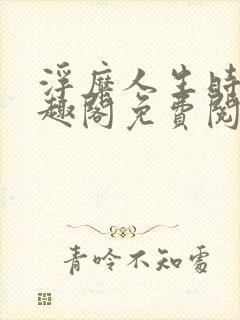 浮靡人生時
趣閣免費閱
青吟不知處